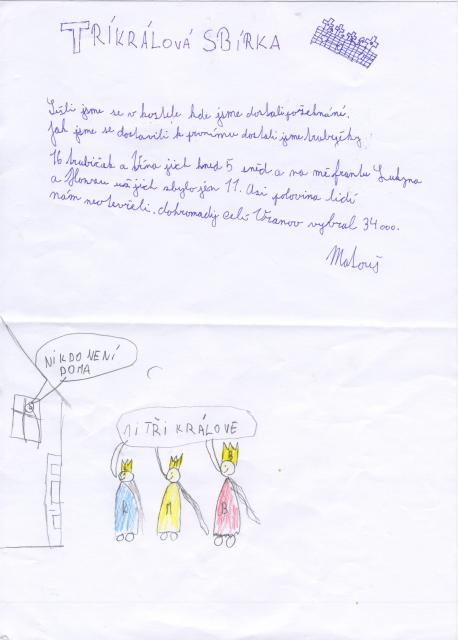 TŘÍKRÁLOVÁ SBÍRKA
Sešli jsme se v kostele kde jsme dostali požehnání.
Jak jsme se dostavili k prvnímu dostali jsme trubičky
16 trubiček a Věna jich hned 5 snědl a na mě frantu
a už jich zbylo jen 11. Asi polovina lidí
nám neotevřeli. dohromady celí Vranov vybral 34 000.
Matouš
NIKDO NENÍ
DOMA
MI TŘI KRÁLOVE
K M B